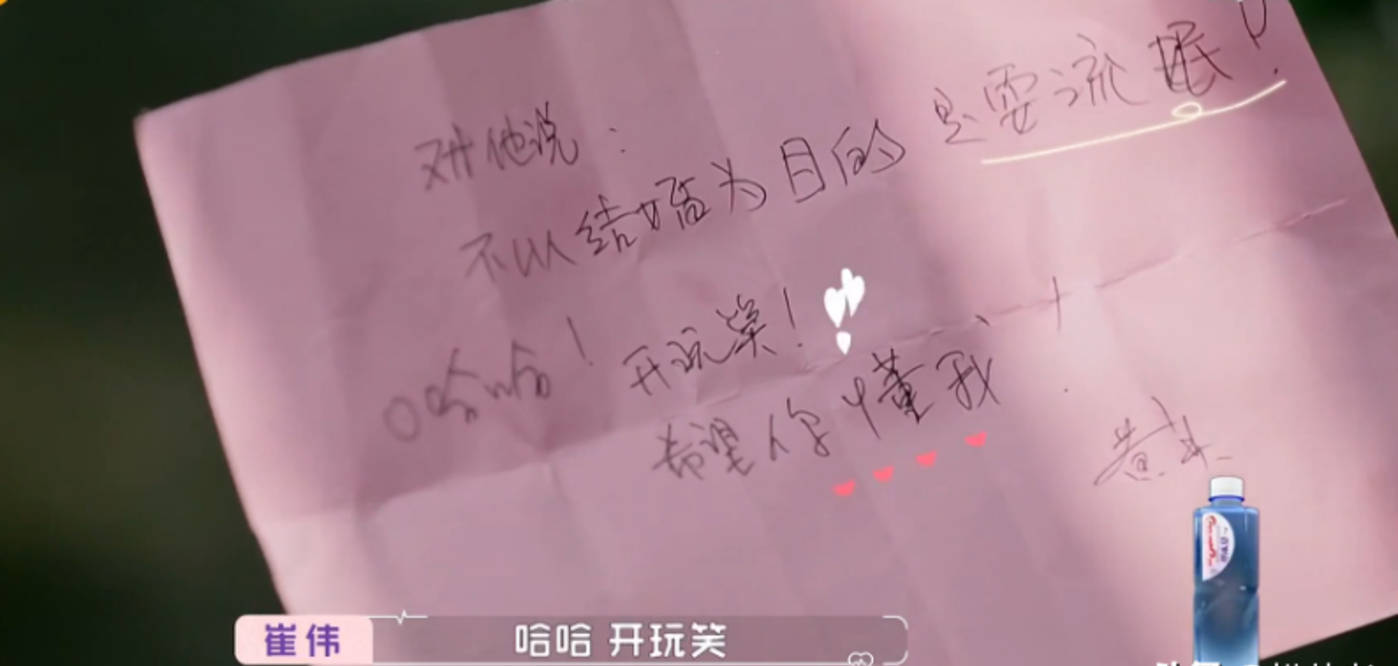 对他说：
不以结婚为目的是耍流氓！
哈哈！开玩笑！
希望你懂我！
崔伟 哈哈 开玩笑